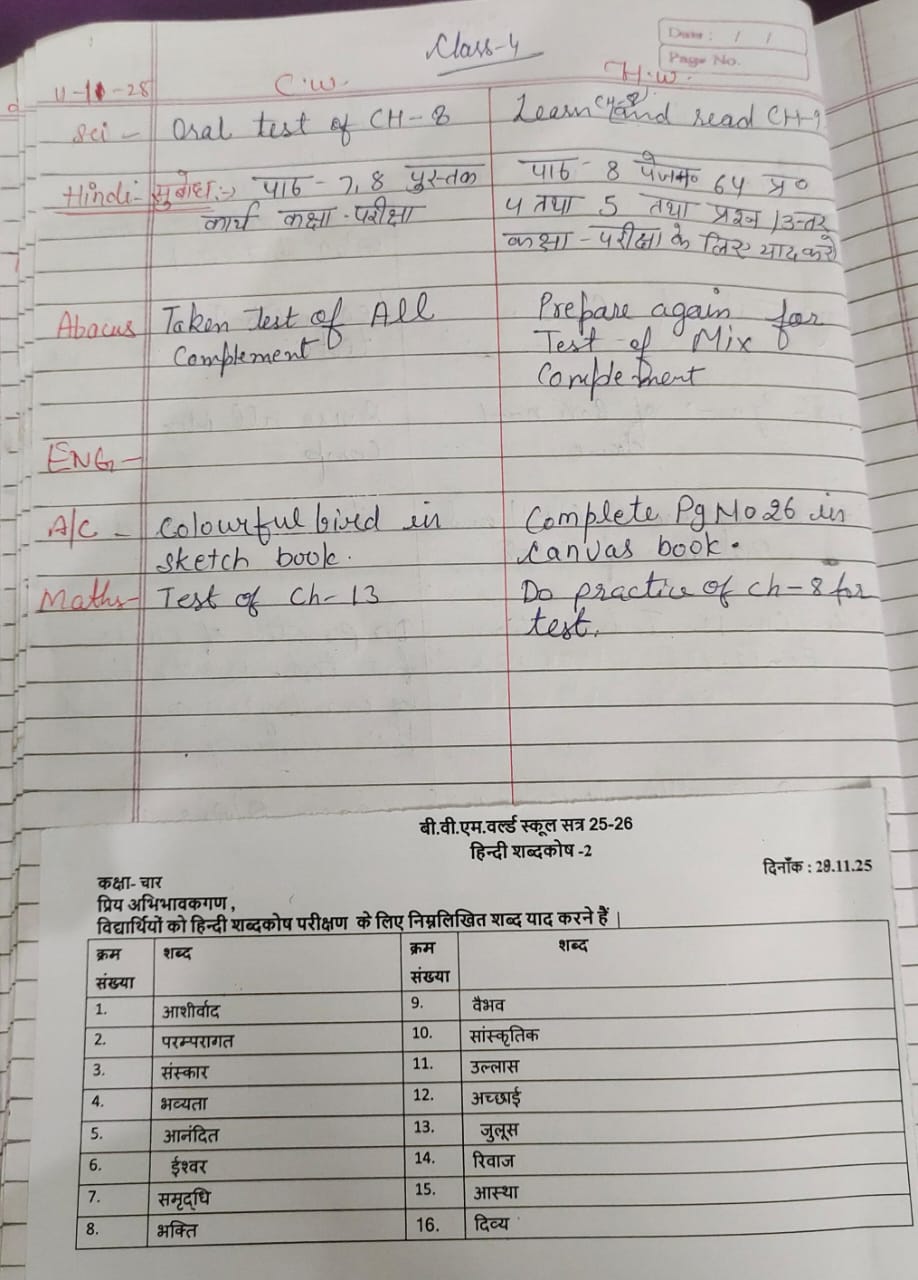 Class-4
Date : / /
Page No.
C.W.
H.W.
Sci - Oral test of CH-8
Learn CH-8 and read CH-9
Hindi- सुबोध:-> पाठ - 7, 8 पुस्तक
कार्य कक्षा-परीक्षा
पाठ - 8 पेज न० 64 प्र०
4 तथा 5 तथा प्रश्न / उत्तर
कक्षा - परीक्षा के लिए याद करो
Abacus Taken test of All
Complement
Prepare again for
Test of Mix
Complement
ENG-
A/C - Colourful bird in
sketch book.
Complete Pg No 26 in
Canvas book.
Maths- Test of Ch-13
Do practice of ch-8 for
test.
बी.वी.एम.वर्ल्ड स्कूल सत्र 25-26
हिन्दी शब्दकोष -2
दिनाँक : 29.11.25
कक्षा- चार
प्रिय अभिभावकगण ,
विद्यार्थियों को हिन्दी शब्दकोष परीक्षण के लिए निम्नलिखित शब्द याद करने हैं |
क्रम संख्या शब्द क्रम संख्या शब्द
1. आशीर्वाद 9. वैभव
2. परम्परागत 10. सांस्कृतिक
3. संस्कार 11. उल्लास
4. भव्यता 12. अच्छाई
5. आनंदित 13. जुलूस
6. ईश्वर 14. रिवाज
7. समृद्धि 15. आस्था
8. भक्ति 16. दिव्य